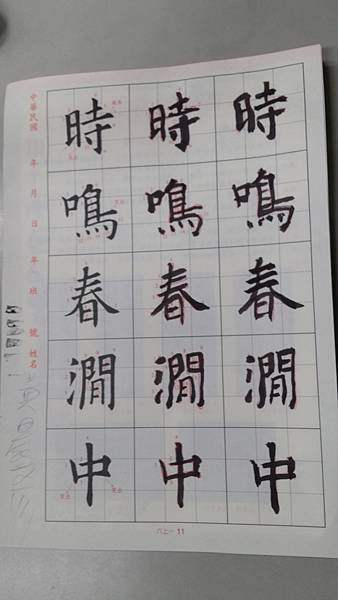 時時時
鳴鳴鳴
春春春
澗澗澗
中中中
中華民國 年 月 日 年 班 號 姓名
六上－11